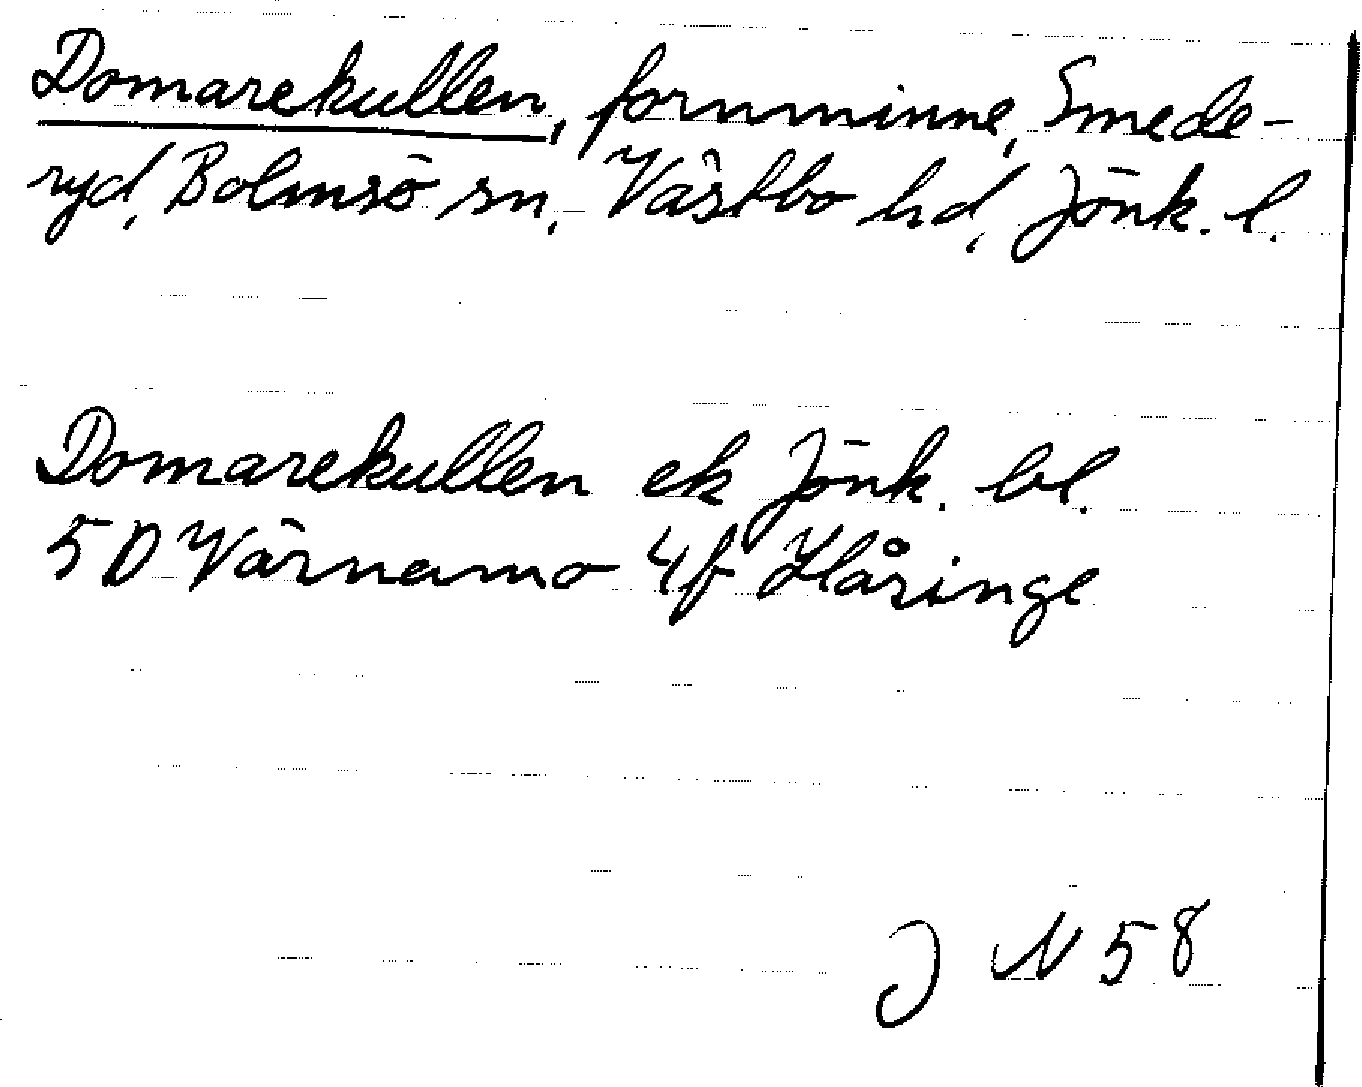 Domarekullen, fornminne, Smede-
ryd, Bolmsö sn, Västbo hd, Jönk. l.
Domarekullen ek Jönk. bl.
5D Värnamo 4f Håringe
J N 58